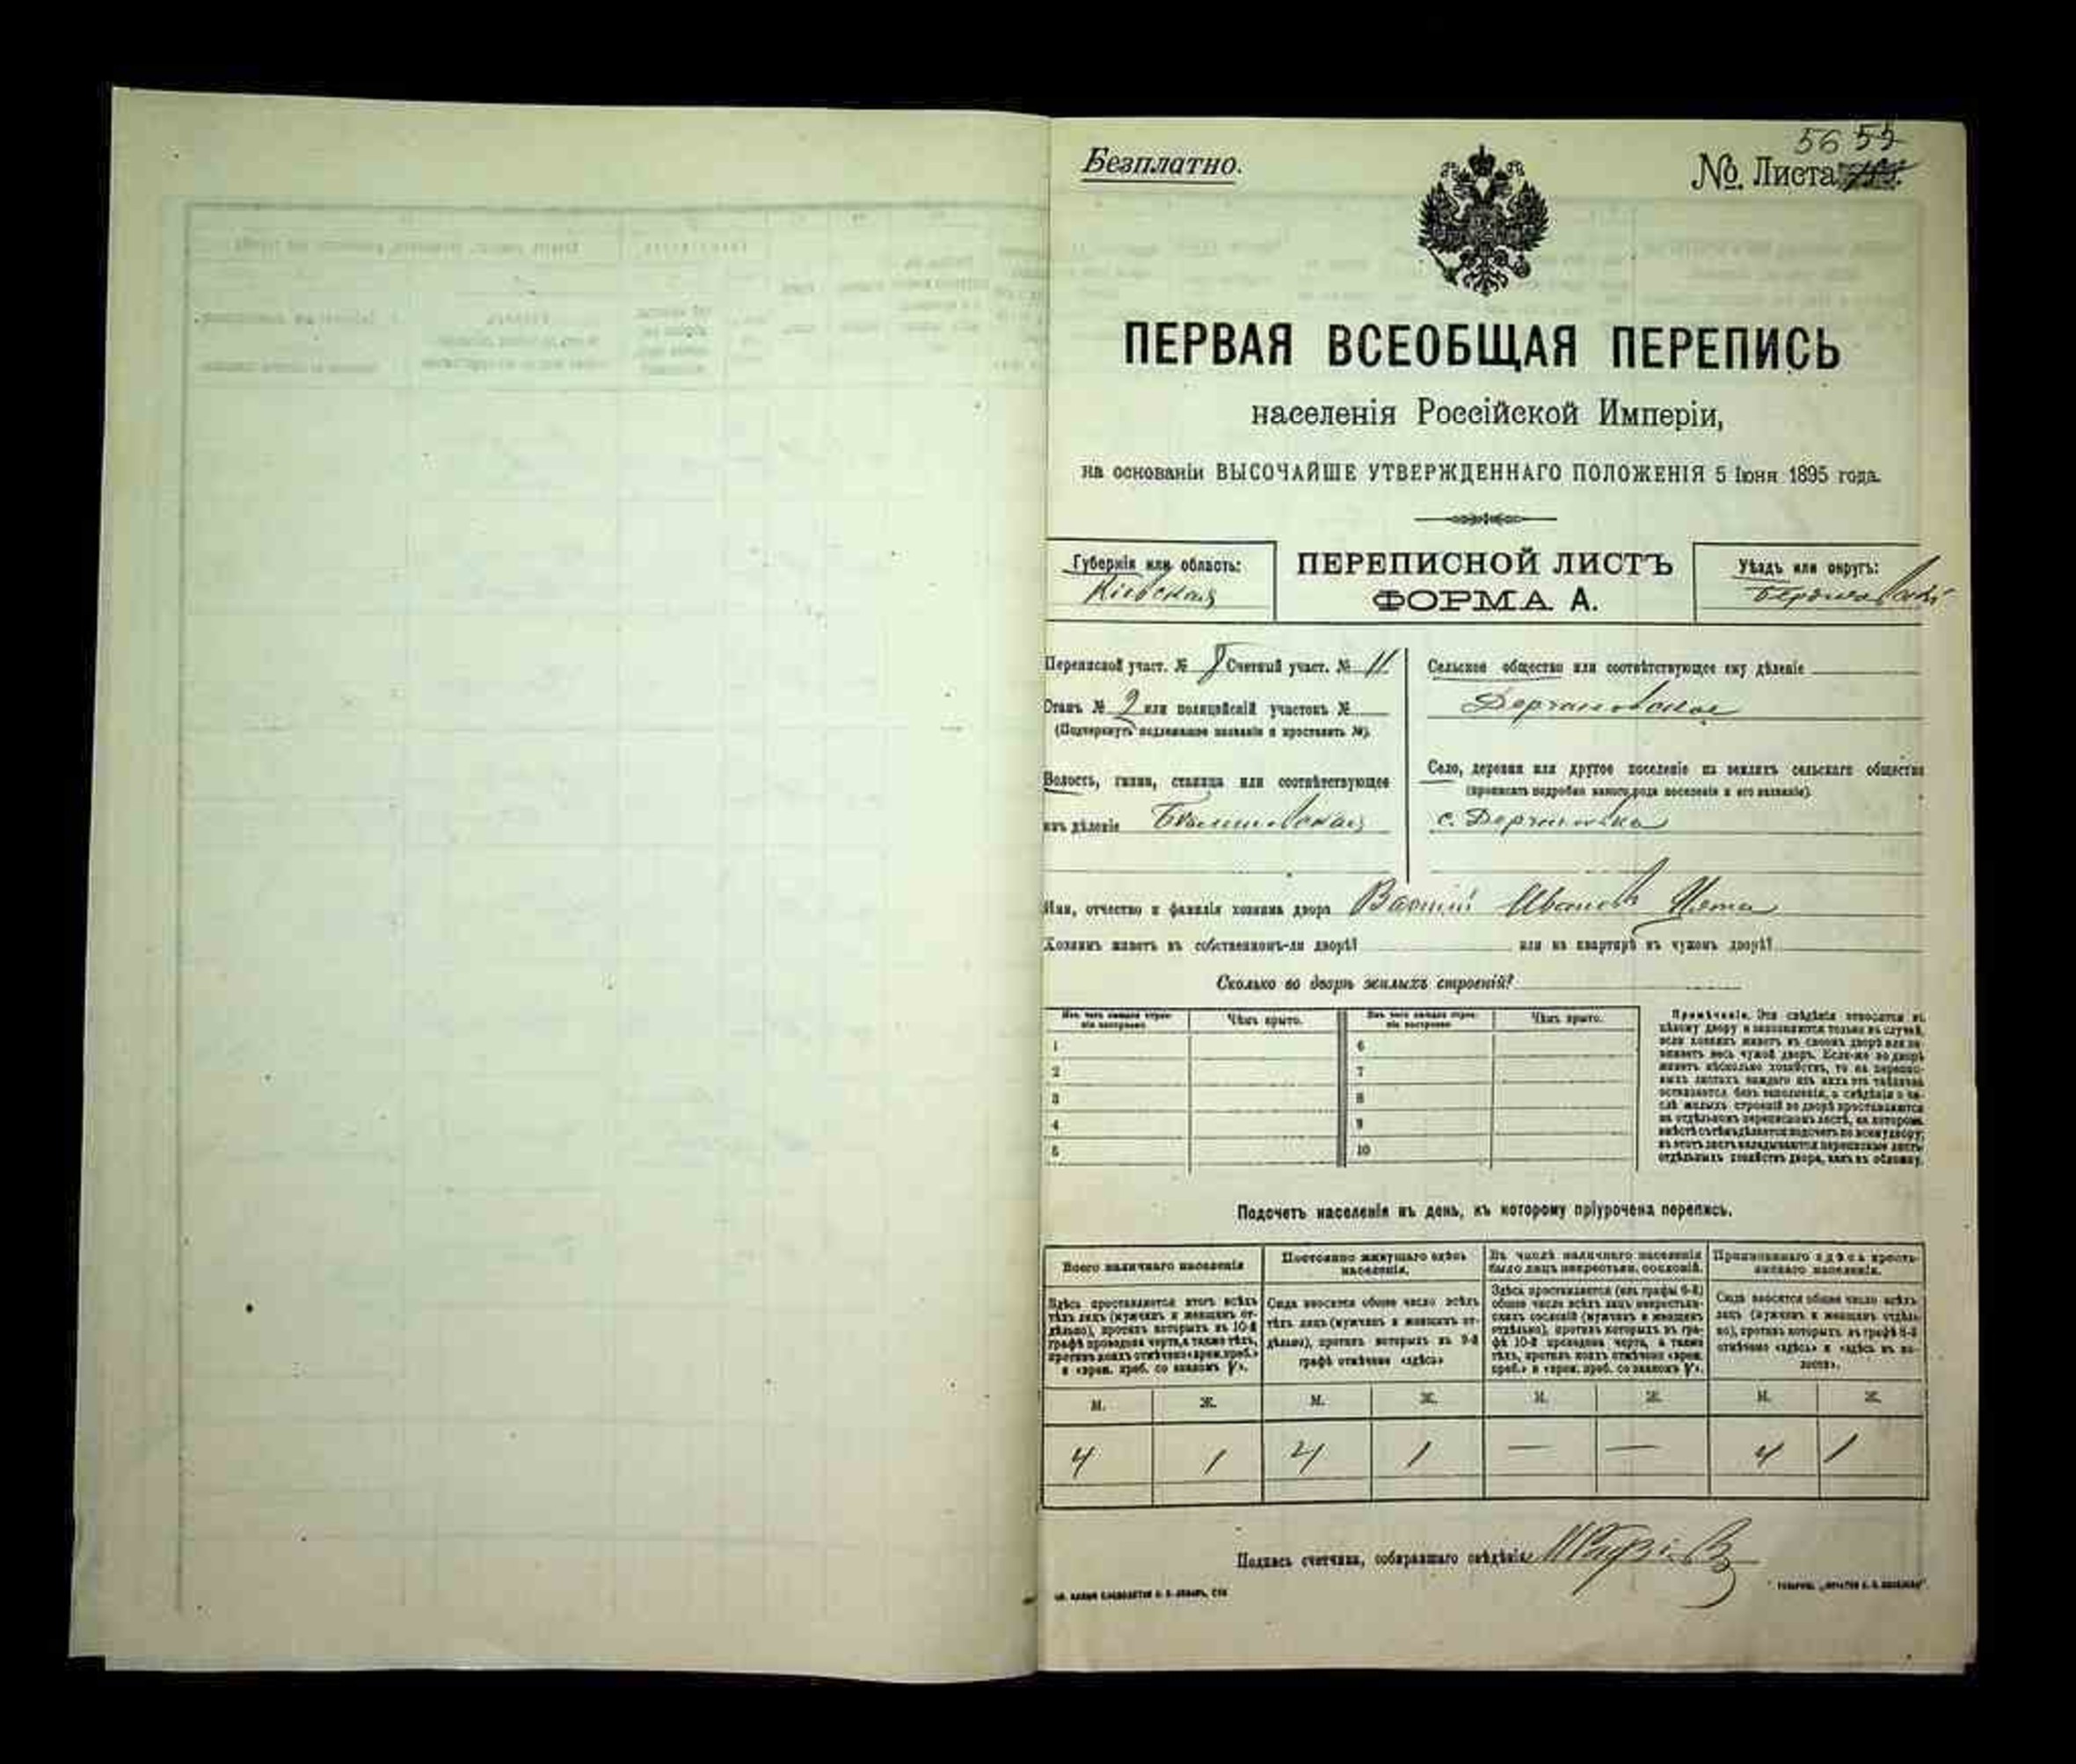 56 55
Безплатно.
№ Листа
ПЕРВАЯ ВСЕОБЩАЯ ПЕРЕПИСЬ
населенія Россійской Имперіи,
на основаніи ВЫСОЧАЙШЕ УТВЕРЖДЕННАГО ПОЛОЖЕНІЯ 5 Іюня 1895 года.
Губернія или область:
Кіевская
ПЕРЕПИСНОЙ ЛИСТЪ
ФОРМА А.
Уѣздъ или округъ:
Бердичевскій
Переписной участ. № 8 Счетный участ. № 11
Станъ № 2 или полицейскій участокъ №
(Подчеркнуть надлежащее названіе и проставить №).
Волость, гмина, станица или соотвѣтствующее
имъ дѣленіе
Сельское общество или соотвѣтствующее ему дѣленіе
Село, деревня или другое поселеніе на земляхъ сельскаго общества
(прописать подробно какого рода поселеніе и его названіе).
с.
Имя, отчество и фамилія хозяина двора Василій Ивановъ
Хозяинъ живетъ въ собственномъ-ли дворѣ? или на квартирѣ въ чужомъ дворѣ?
Сколько во дворѣ жилыхъ строеній?
Изъ чего каждое строеніе построено
Чѣмъ крыто.
Изъ чего каждое строеніе построено
Чѣмъ крыто.
1 6
2 7
3 8
4 9
5 10
Примѣчаніе. Эти свѣдѣнія относятся къ
цѣлому двору и заполняются только въ случаѣ,
если хозяинъ живетъ въ своемъ дворѣ или за-
нимаетъ весь чужой дворъ. Если-же во дворѣ
живетъ нѣсколько хозяйствъ, то на перепис-
ныхъ листахъ каждаго изъ нихъ эта таблица
оставляется безъ заполненія, а свѣдѣнія о чи-
слѣ жилыхъ строеній во дворѣ проставляются
на отдѣльномъ переписномъ листѣ, на которомъ
вмѣстѣ съ тѣмъ дѣлается подсчетъ по всему двору;
въ этотъ листъ вкладываются переписные листы
отдѣльныхъ хозяйствъ двора, какъ въ обложку.
Подсчетъ населенія въ день, къ которому пріурочена перепись.
Всего наличнаго населенія
Здѣсь проставляется итогъ всѣхъ
тѣхъ лицъ (мужчинъ и женщинъ от-
дѣльно), противъ которыхъ въ 10-й
графѣ проведена черта, а также тѣхъ,
противъ коихъ отмѣчено «врем. преб.»
и «врем. преб. со знакомъ V».
Постоянно живущаго здѣсь
населенія.
Сюда вносится общее число всѣхъ
тѣхъ лицъ (мужчинъ и женщинъ от-
дѣльно), противъ которыхъ въ 9-й
графѣ отмѣчено «здѣсь»
Въ числѣ наличнаго населенія
было лицъ некрестьян. сословій.
Здѣсь проставляется (изъ графы 6-й)
общее число всѣхъ лицъ некрестьян-
скихъ сословій (мужчинъ и женщинъ
отдѣльно), противъ которыхъ въ гра-
фѣ 10-й проведена черта, а также
тѣхъ, противъ коихъ отмѣчено «врем.
преб.» и «врем. преб. со знакомъ V».
Приписаннаго здѣсь кресть-
янскаго населенія.
Сюда вносится общее число всѣхъ
лицъ (мужчинъ и женщинъ отдѣль-
но), противъ которыхъ въ графѣ 8-й
отмѣчено «здѣсь» и «здѣсь въ во-
лости».
М. Ж. М. Ж. М. Ж. М. Ж.
4 1 4 1 — — 4 1
Подпись счетчика, собиравшаго свѣдѣнія